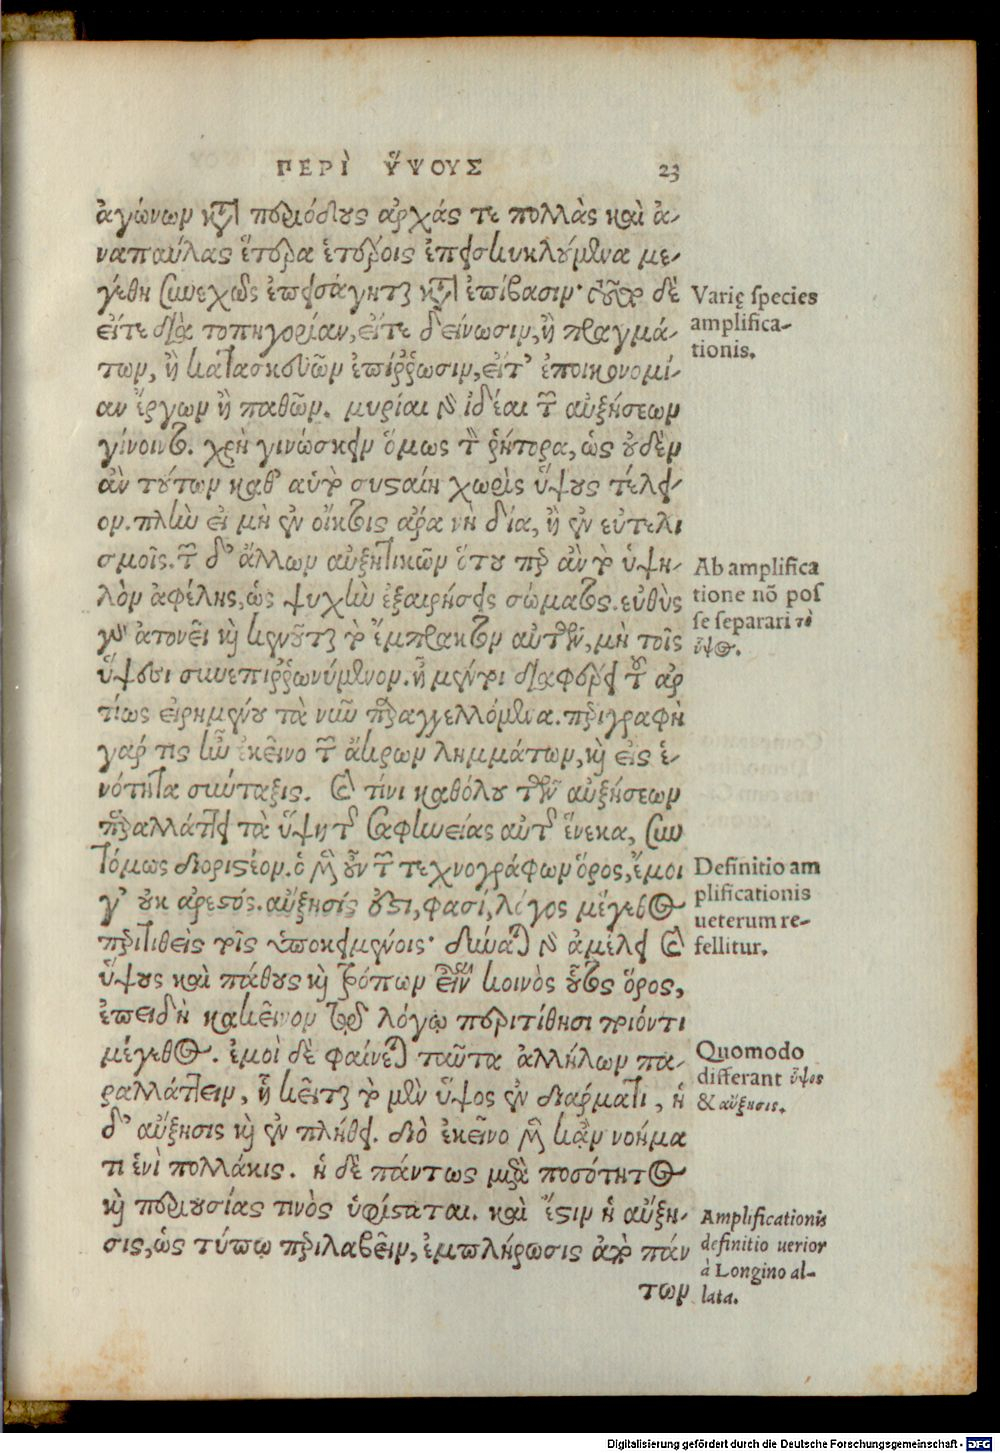 ΠΕΡῚ ὝΨΟΥΣ 23
ἀγώνων κατὰ περιόδους ἀρχάς τε πολλὰς καὶ ἀ-
ναπαύλας ἕτερα ἑτέροις ἐπεισκυκλούμενα με-
γέθη συνεχῶς ἐπεισάγηται κατὰ ἐπίβασιν· τοῦτο δὲ
εἴτε διὰ τοπηγορίαν, εἴτε δείνωσιν, ἢ πραγμά-
των, ἢ κατασκευῶν ἐπίῤῥωσιν, εἴτ' ἐποικονομί-
αν ἔργων ἢ παθῶν. μυρίαι δὲ ἰδέαι τῶν αὐξήσεων
γίνοιντο. χρὴ γινώσκειν ὅμως τὸν ῥήτορα, ὡς οὐδὲν
ἂν τούτων καθ' αὑτὸ συσταίη χωρὶς ὕψους τέλει-
ον. πλὴν εἰ μὴ ἐν οἴκτοις ἄρα νὴ δία, ἢ ἐν εὐτελι
σμοῖς. τῶν δ' ἄλλων αὐξητικῶν ὅτου περ ἂν τὸ ὑψη-
λὸν ἀφέλῃς, ὡς ψυχὴν ἐξαιρήσεις σώματος. εὐθὺς
γὰρ ἀτονεῖ καὶ κενοῦται τὸ ἔμπρακτον αὐτῶν, μὴ τοῖς
ὕψεσι συνεπιῤῥωνύμενον. ᾗ μέντοι διαφέρει τῶν ἀρ
τίως εἰρημένου τὰ νῦν παραγγελλόμενα. περιγραφὴ
γάρ τις ἦν ἐκεῖνο τῶν ἄκρων λημμάτων, καὶ εἰς ἑ-
νότητα σύνταξις. καὶ τίνι καθόλου τῶν αὐξήσεων
παραλλάττει τὰ ὕψη τῆς σαφηνείας αὐτῆς ἕνεκα, συν
τόμως διοριστέον. ὁ μὲν οὖν τῶν τεχνογράφων ὅρος, ἔμοι
γ' οὐκ ἀρεστός. αὔξησίς ἐστι, φασί, λόγος μέγεθος
περιτιθεὶς τοῖς ὑποκειμένοις· δύναται δὲ ἀμέλει καὶ
ὕψους καὶ πάθους καὶ τρόπων εἶναι κοινὸς οὗτος ὅρος,
ἐπειδὴ κακεῖνον τῷ λόγῳ περιτίθησι τριόντι
μέγεθος. ἐμοὶ δὲ φαίνεται ταῦτα ἀλλήλων πα-
ραλλάττειν, ᾗ κεῖται τὸ μὲν ὕψος ἐν διάρματι, ἡ
δ' αὔξησις καὶ ἐν πλήθει. διὸ ἐκεῖνο μὲν κἂν νοήμα
τι ἑνὶ πολλάκις. ἡ δὲ πάντως μετὰ ποσότητος
καὶ περιουσίας τινὸς ὑφίσταται. καὶ ἔστιν ἡ αὔξη-
σις, ὡς τύπῳ περιλαβεῖν, ἐμπλήρωσις ἀπὸ πάν
των
Varię species
amplifica-
tionis.
Ab amplifica
tione nõ pos
se separari τὸ
ὕψος.
Definitio am
plificationis
ueterum re-
fellitur.
Quomodo
differant ὕψος
& αὔξησις.
Amplificationis
definitio uerior
à Longino al-
lata.
Digitalisierung gefördert durch die Deutsche Forschungsgemeinschaft - DFG